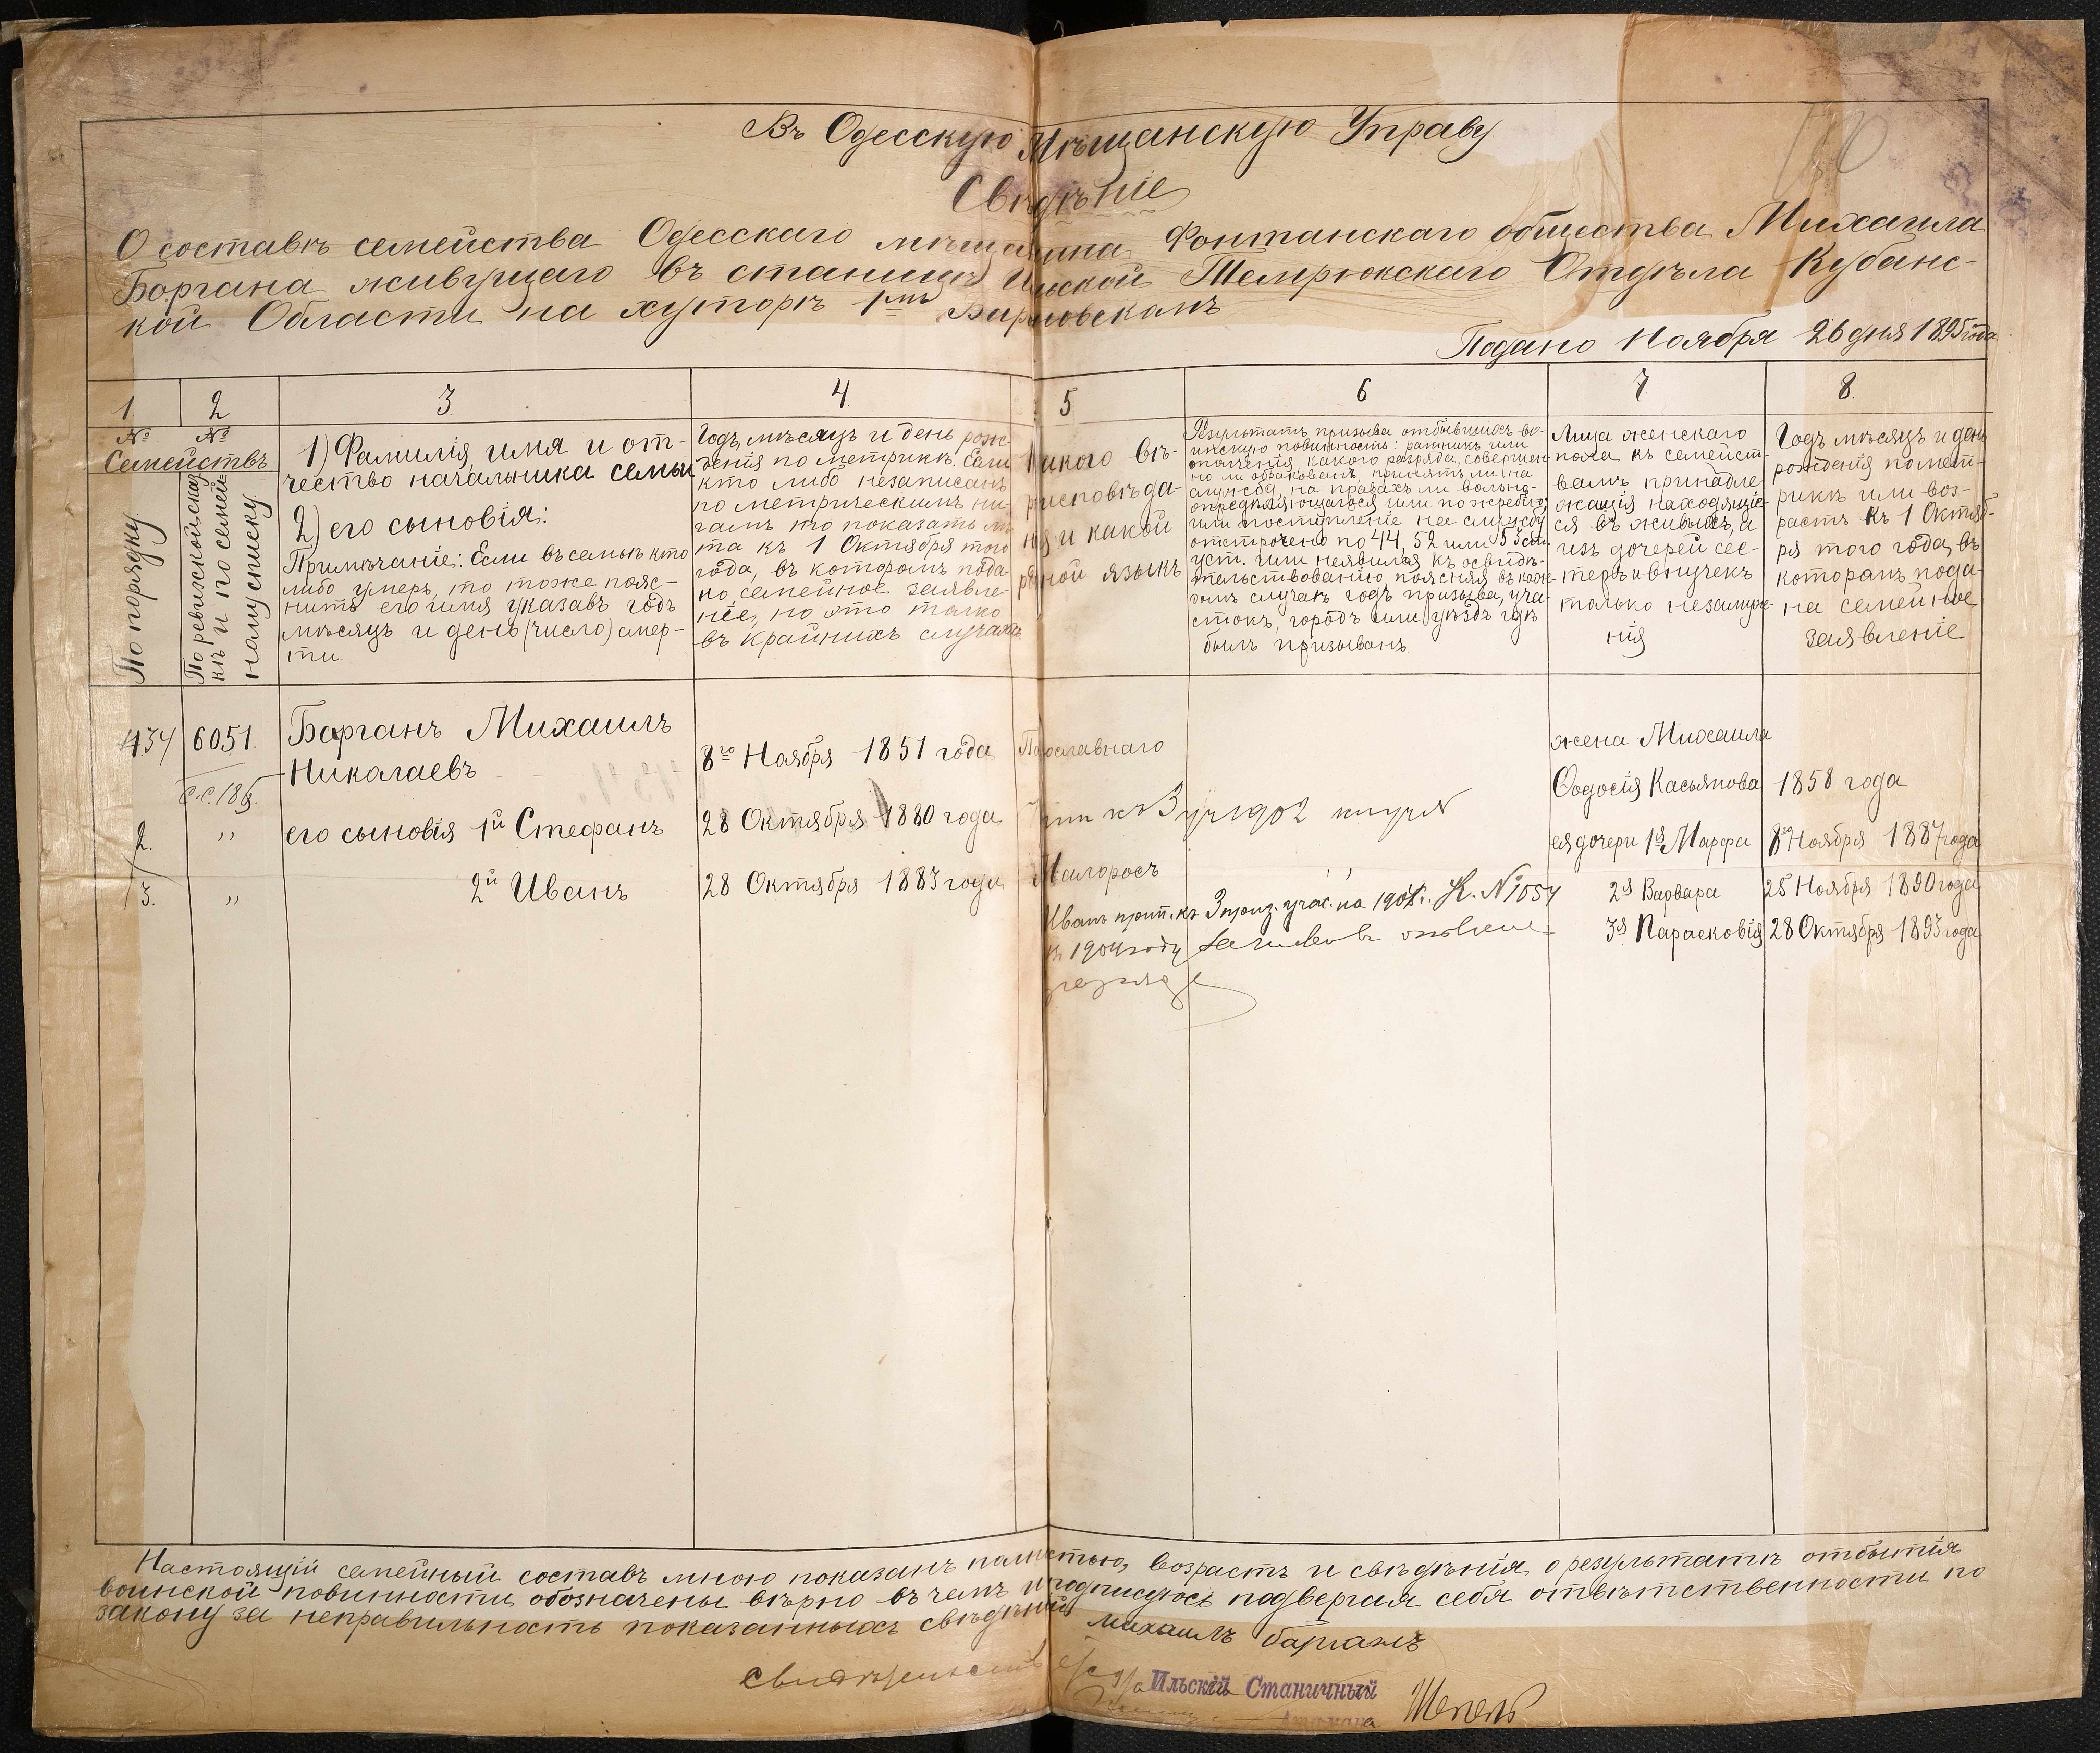 Въ Одесскую Мѣщанскую Управу
Свѣдѣніе
О составѣ семейства Одесскаго мѣщанина Фонтанскаго общества Михаила
Баргана живущаго въ станицѣ Ильской Темрюкскаго Отдѣла Кубанс-
кой Области на хуторѣ 1мъ
Подано Ноября 26 дня 1895 года
1 2 3 4 5 6 7 8
№ №
Семействъ
По порядку
По ревизской сказ-
кѣ и по семей-
ному списку
1) Фамилія, имя и от-
чество начальника семьи
2) его сыновія:
Примѣчаніе: Если въ семьѣ кто
либо умеръ, то тоже пояс-
нить его имя указавъ годъ
мѣсяцъ и день (число) смер-
ти.
Годъ, мѣсяцъ и день рож-
денія по метрикѣ. Если
кто либо незаписанъ
по метрическимъ кни-
гамъ то показать лѣ-
та къ 1 Октября того
года, въ которомъ пода-
но семейное заявле-
ніе, но это только
въ крайнихъ случаяхъ
Какого вѣ-
роисповѣда-
нія и какой
родной языкъ
Результатъ призыва отбывшихъ во-
инскую повинность: ратникъ или
ополченія, какого разряда, совершен-
но ли обракованъ, принятъ ли на
службу на правахъ ли вольно-
опредѣляющагося или по жребію;
или поступленіе на службу
отсрочено по 44, 52 или 53 стат.
уст. или неявился къ освидѣ-
тельствованію, поясняя въ каж-
домъ случаѣ годъ призыва, уча-
стокъ, городъ или уѣздъ гдѣ
былъ призыванъ
Лица женскаго
пола къ семейст-
вамъ принадле-
жащія находящіе-
ся въ живыхъ, а
изъ дочерей сес-
теръ и внучекъ
только незамуж-
нія
Годъ мѣсяцъ и день
рожденія по мет-
рикѣ или воз-
растъ къ 1 Октяб-
ря того года, въ
которомъ пода-
на семейное
заявленіе
434 6051. Барганъ Михаилъ
Николаевъ
8го Ноября 1851 года Православнаго
жена Михаила
Ѳодосія Касьянова 1858 года
с.с. 186.
2. " его сыновія 1й Стефанъ 28 Октября 1880 года
ея дочери 1я Марфа 8го Ноября 1887 года
3. " 2й Иванъ 28 Октября 1883 года Малоросъ
2я Варвара 25 Ноября 1890 года
Иванъ прип. къ 3 приз. учас. на 1904 г. К. № 1054
3я Парасковія 28 Октября 1893 года
въ 1904 году
Настоящій семейный составъ мною показанъ полностью, возрастъ и свѣдѣнія о результатѣ отбытія
воинской повинности обозначены вѣрно въ чемъ и подписуюсь подвергая себя отвѣтственности по
закону за неправильность показанныхъ свѣдѣній
михаилъ барганъ
Ильскій Станичный
Атамана